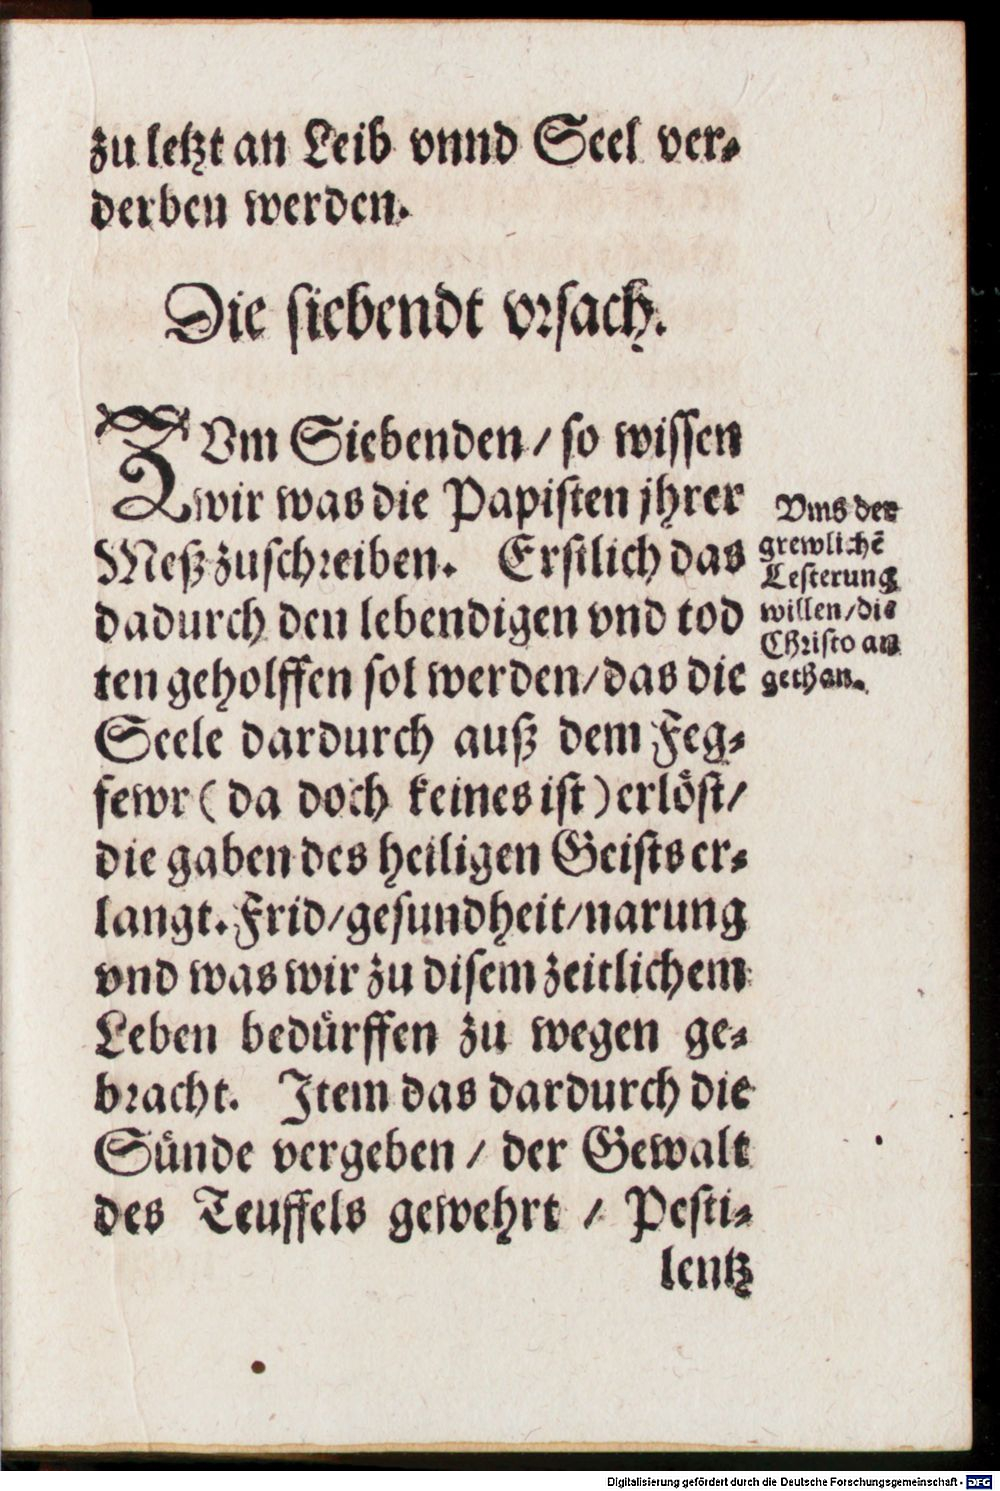 zu letzt an Leib vnnd Seel ver-
derben werden.
Die siebendt vrsach.
ZVm Siebenden / so wissen
wir was die Papisten jhrer
Meß zuschreiben. Erstlich das
dadurch den lebendigen vnd tod
ten geholffen sol werden/das die
Seele dardurch auß dem Feg-
fewr ( da doch keines ist ) erlöst/
die gaben des heiligen Geists er-
langt. Frid/gesundheit/narung
vnd was wir zu disem zeitlichem
Leben bedürffen zu wegen ge-
bracht. Item das dardurch die
Sünde vergeben / der Gewalt
des Teuffels gewehrt / Pesti-
lentz
Vms der
grewlichē
Lesterung
willen/die
Christo an
gethan.
Digitalisierung gefördert durch die Deutsche Forschungsgemeinschaft - DFG